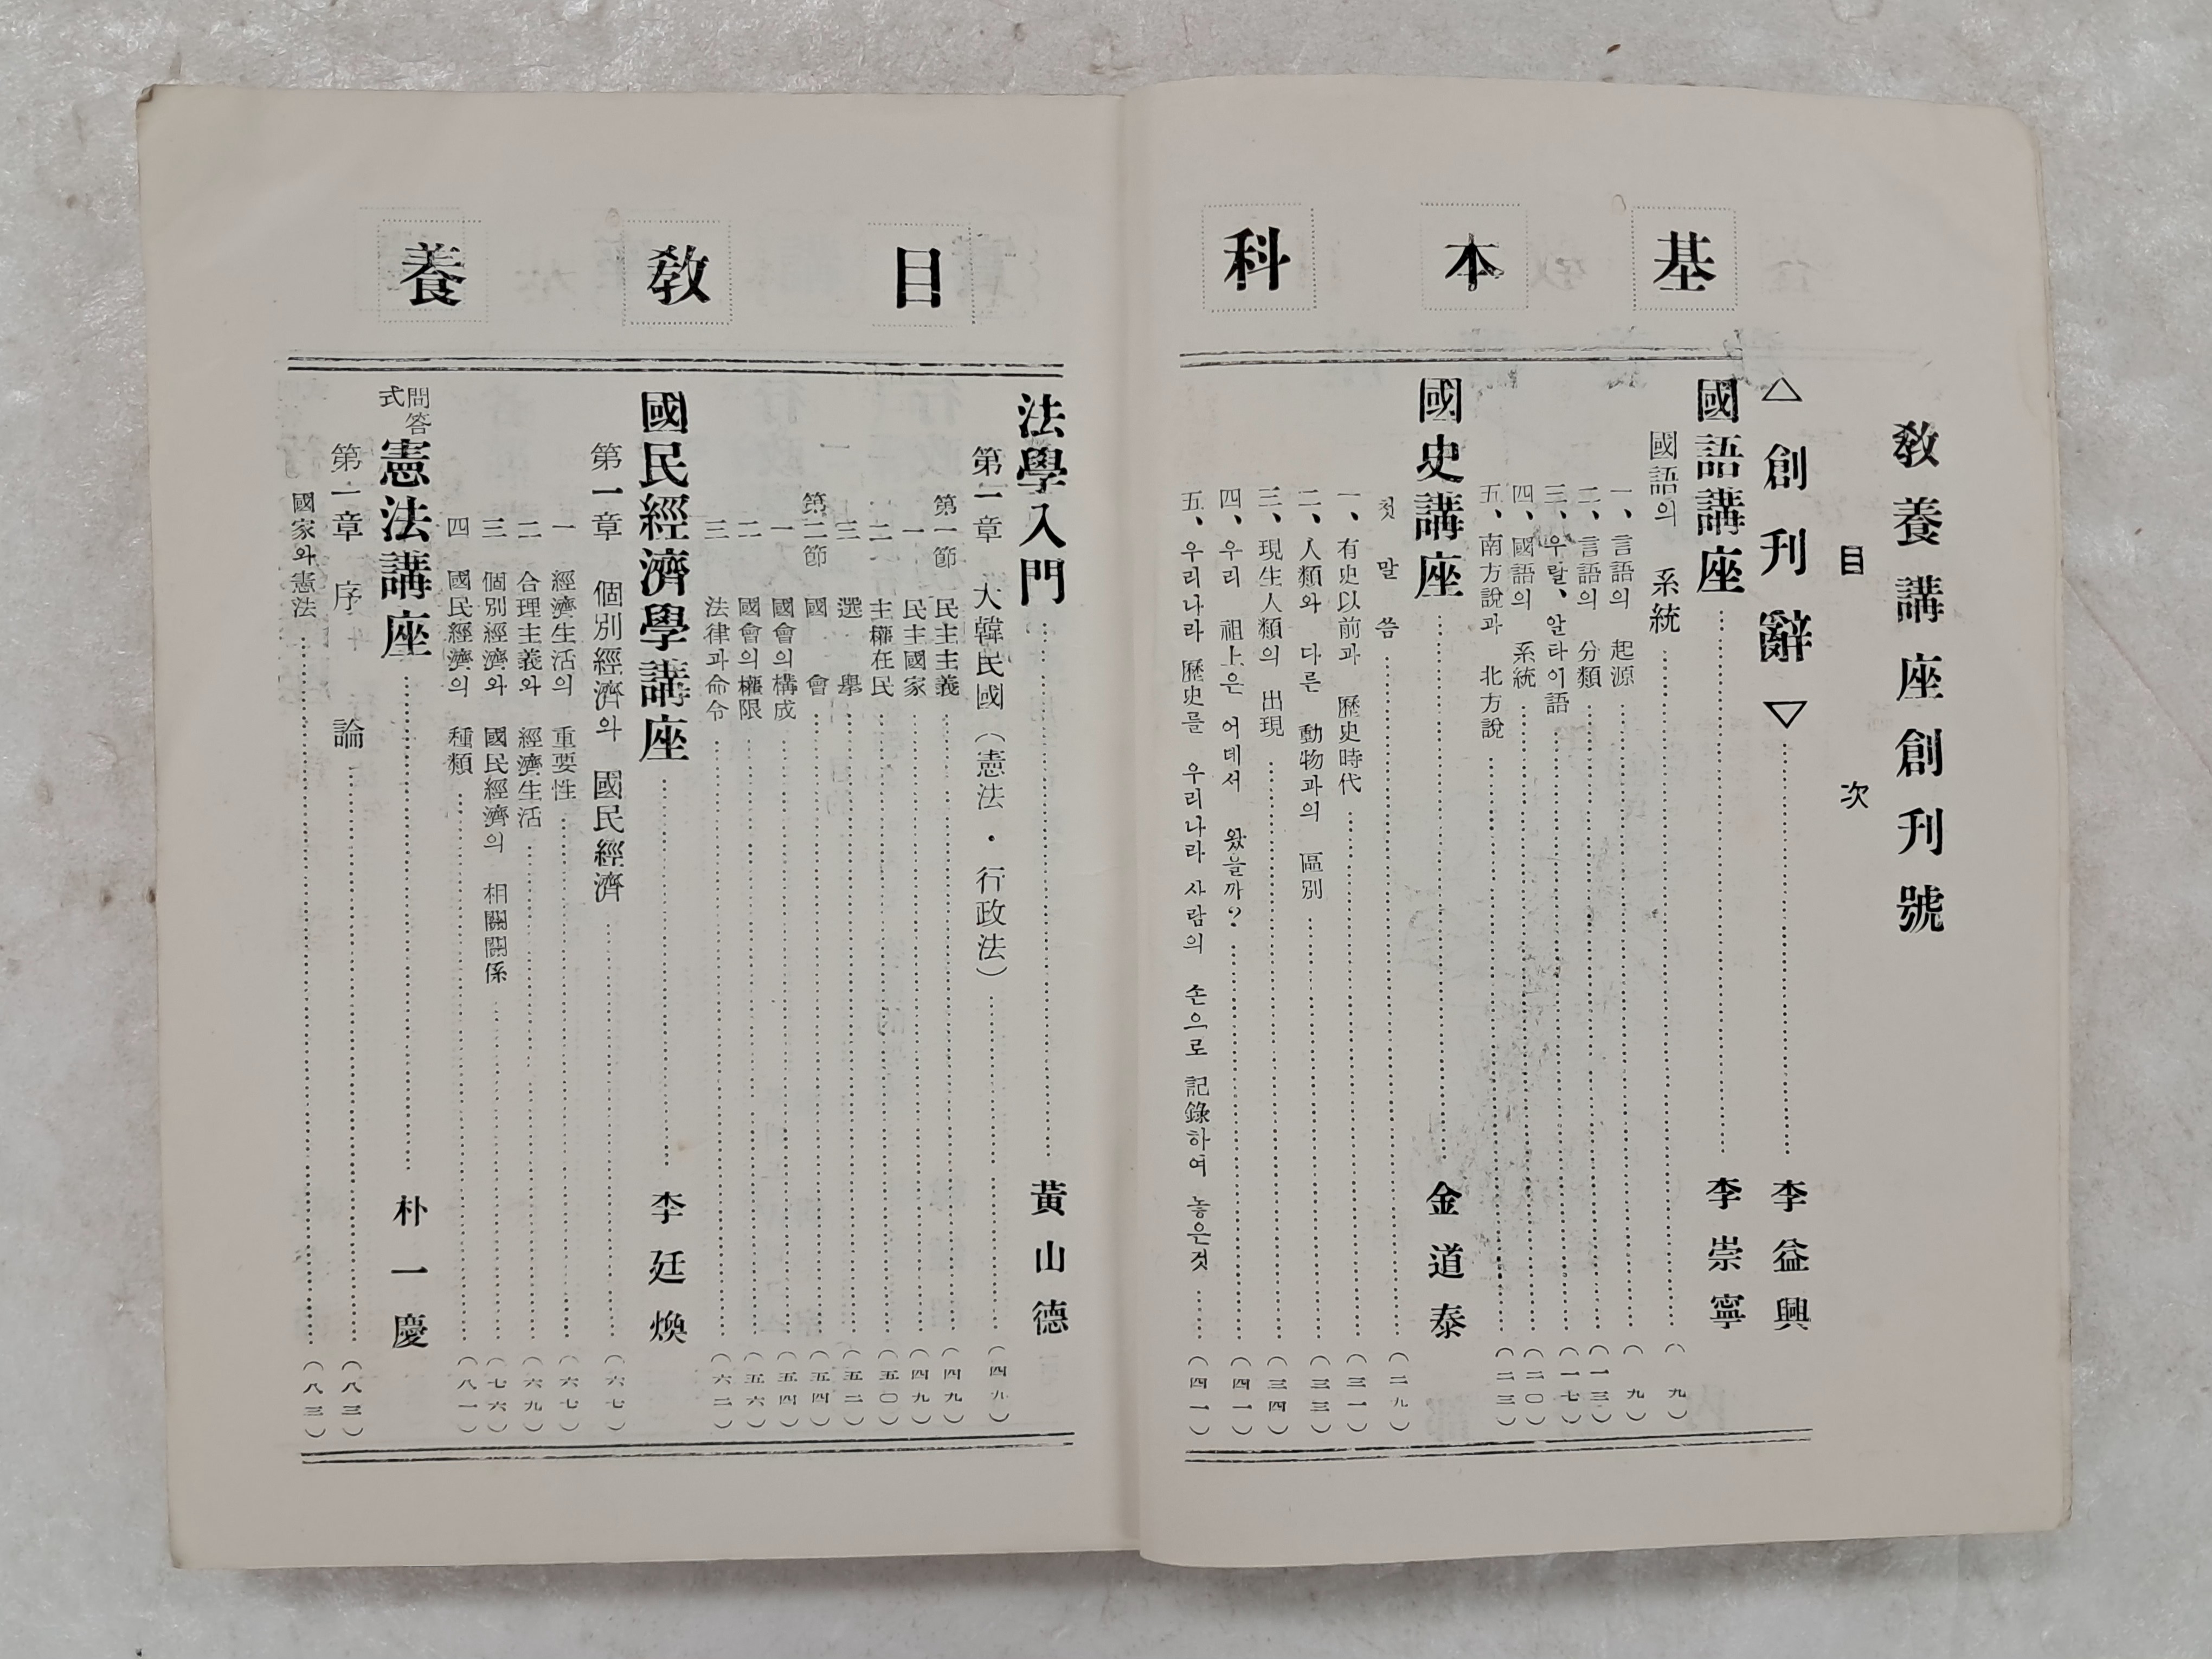 敎養講座創刊號
目次
基本科
△創刊辭▽ 李益興
國語講座 李崇寧
國語의 系統 (九)
一、言語의 起源 (九)
二、言語의 分類 (一三)
三、우랄、알타이語 (一七)
四、國語의 系統 (二〇)
五、南方說과 北方說 (二三)
國史講座 金道泰
첫말씀 (二九)
一、有史以前과 歷史時代 (三一)
二、人類와 다른 動物과의 區別 (三三)
三、現生人類의 出現 (三四)
四、우리 祖上은 어데서 왔을까? (四一)
五、우리나라 歷史를 우리나라 사람의 손으로 記錄하여 놓은것 (四一)
目敎養
法學入門 黃山德
第一章 大韓民國(憲法・行政法) (四九)
第一節 民主主義 (四九)
一 民主國家 (四九)
二 主權在民 (五〇)
三 選擧 (五二)
第二節 國會 (五四)
一 國會의 構成 (五四)
二 國會의 權限 (五六)
三 法律과 命令 (六二)
國民經濟學講座 李廷煥
第一章 個別經濟와 國民經濟 (六七)
一 經濟生活의 重要性 (六七)
二 合理主義와 經濟生活 (六九)
三 個別經濟와 國民經濟의 相關關係 (七六)
四 國民經濟의 種類 (八一)
問答式 憲法講座 朴一慶
第一章 序論 (八三)
國家와 憲法 (八三)